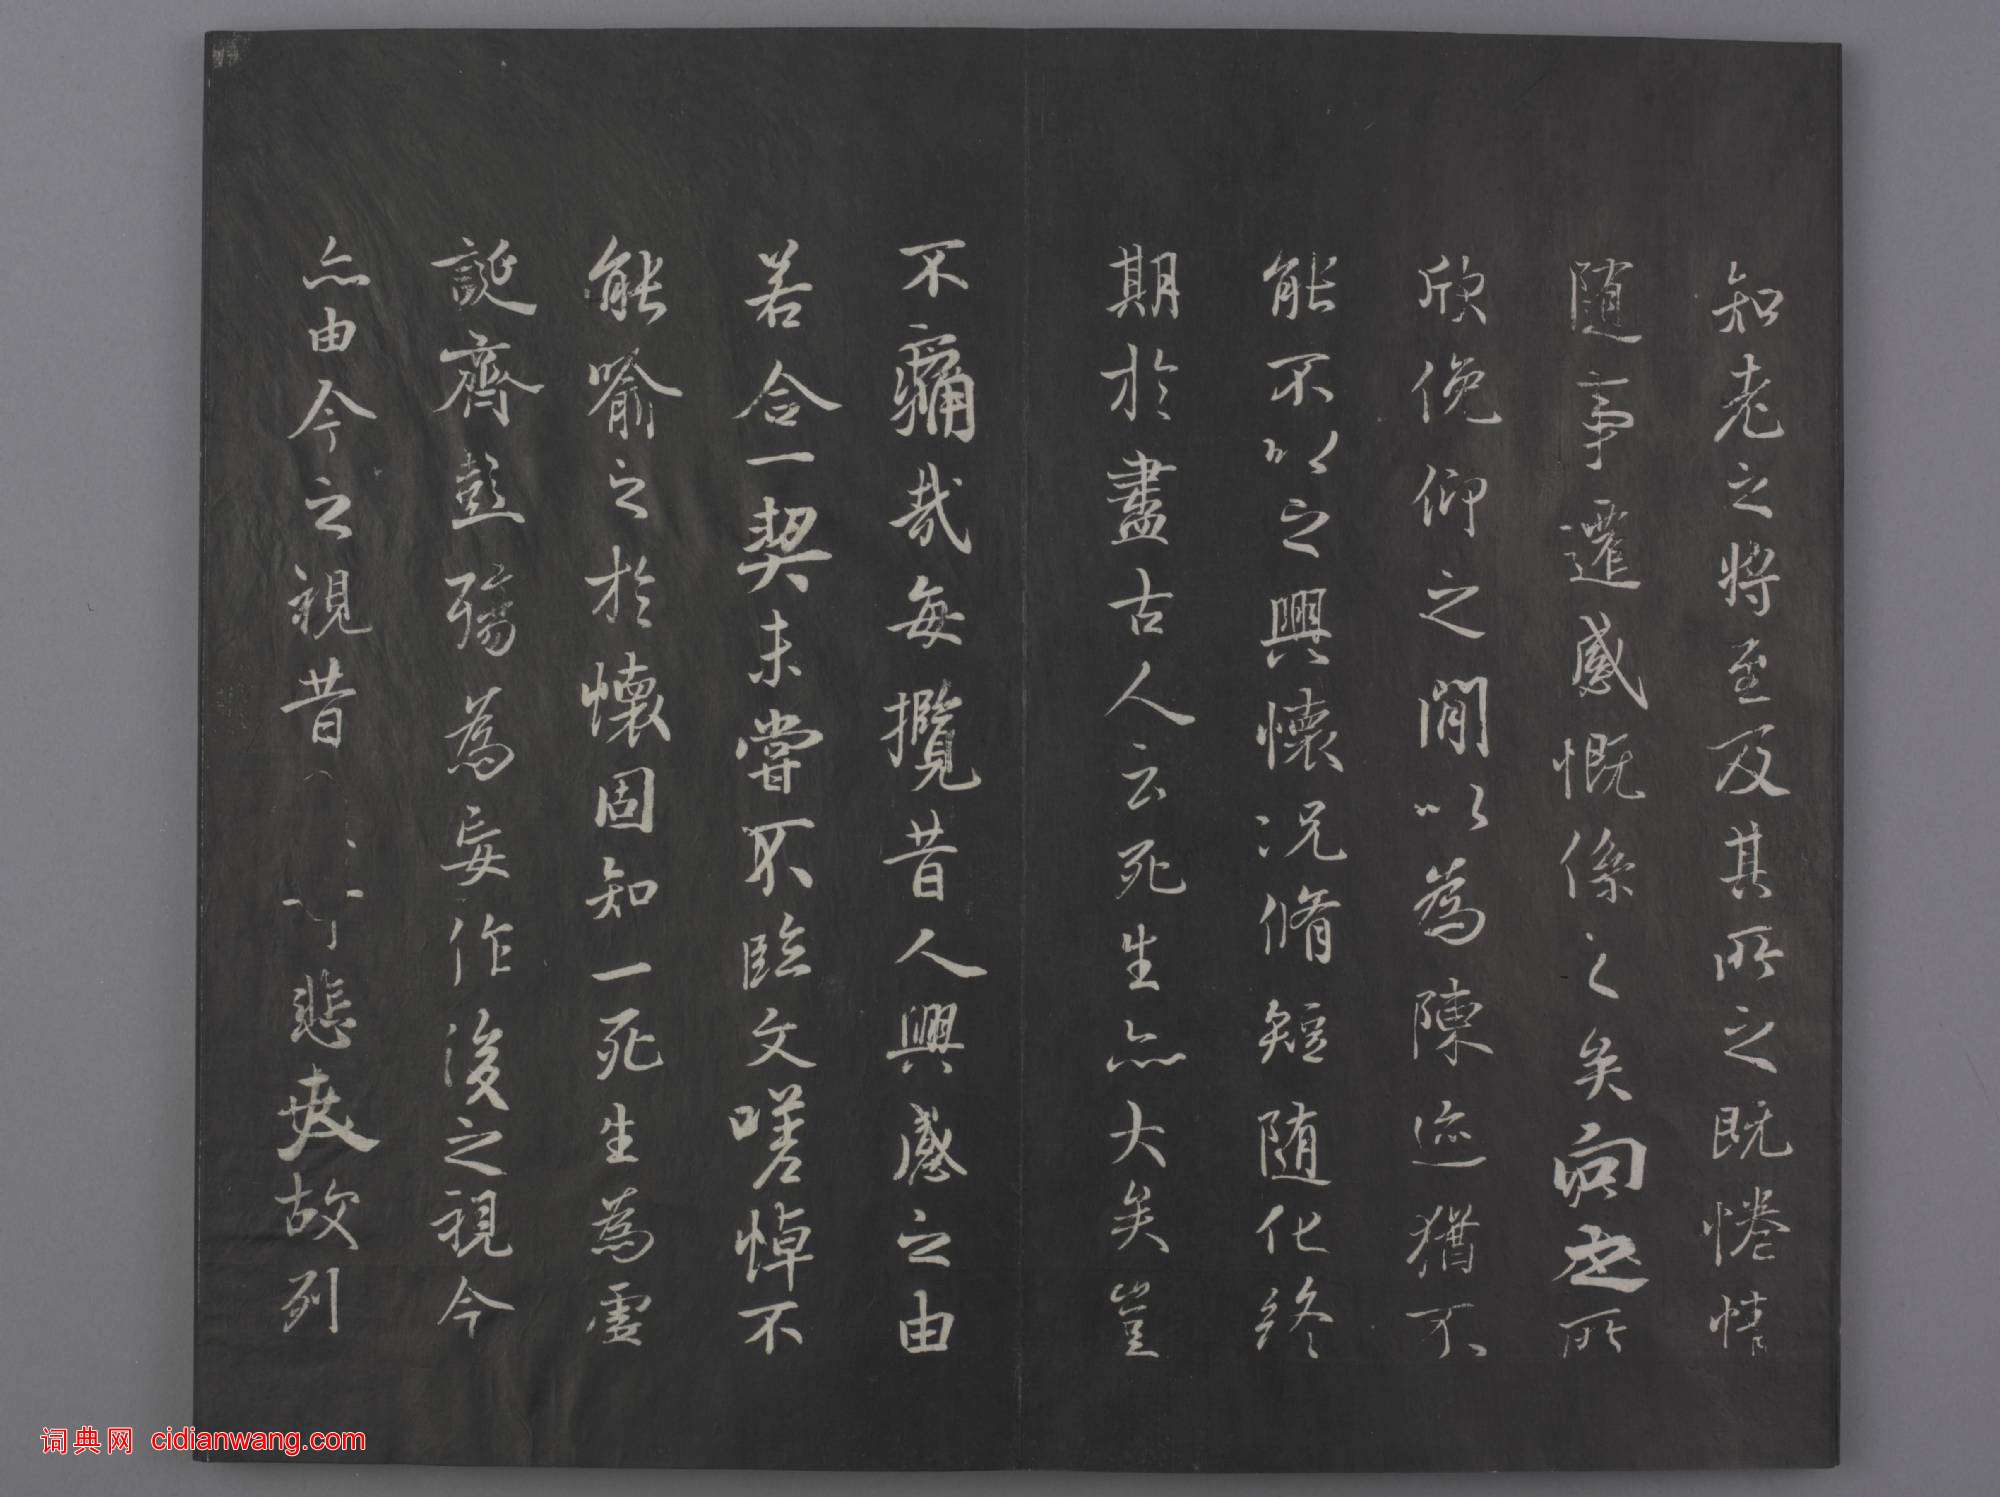 知老之將至及其所之既惓情
随事遷感慨係之矣向之所
欣俛仰之閒以為陳迹猶不
能不以之興懷况脩短随化終
期於盡古人云死生亦大矣豈
不痛哉每攬昔人興感之由
若合一契未嘗不臨文嗟悼不
能喻之於懷固知一死生為虛
誕齊彭殤為妄作後之視今
亦由今之視昔 悲夫故列
词典网 cidianwang.com